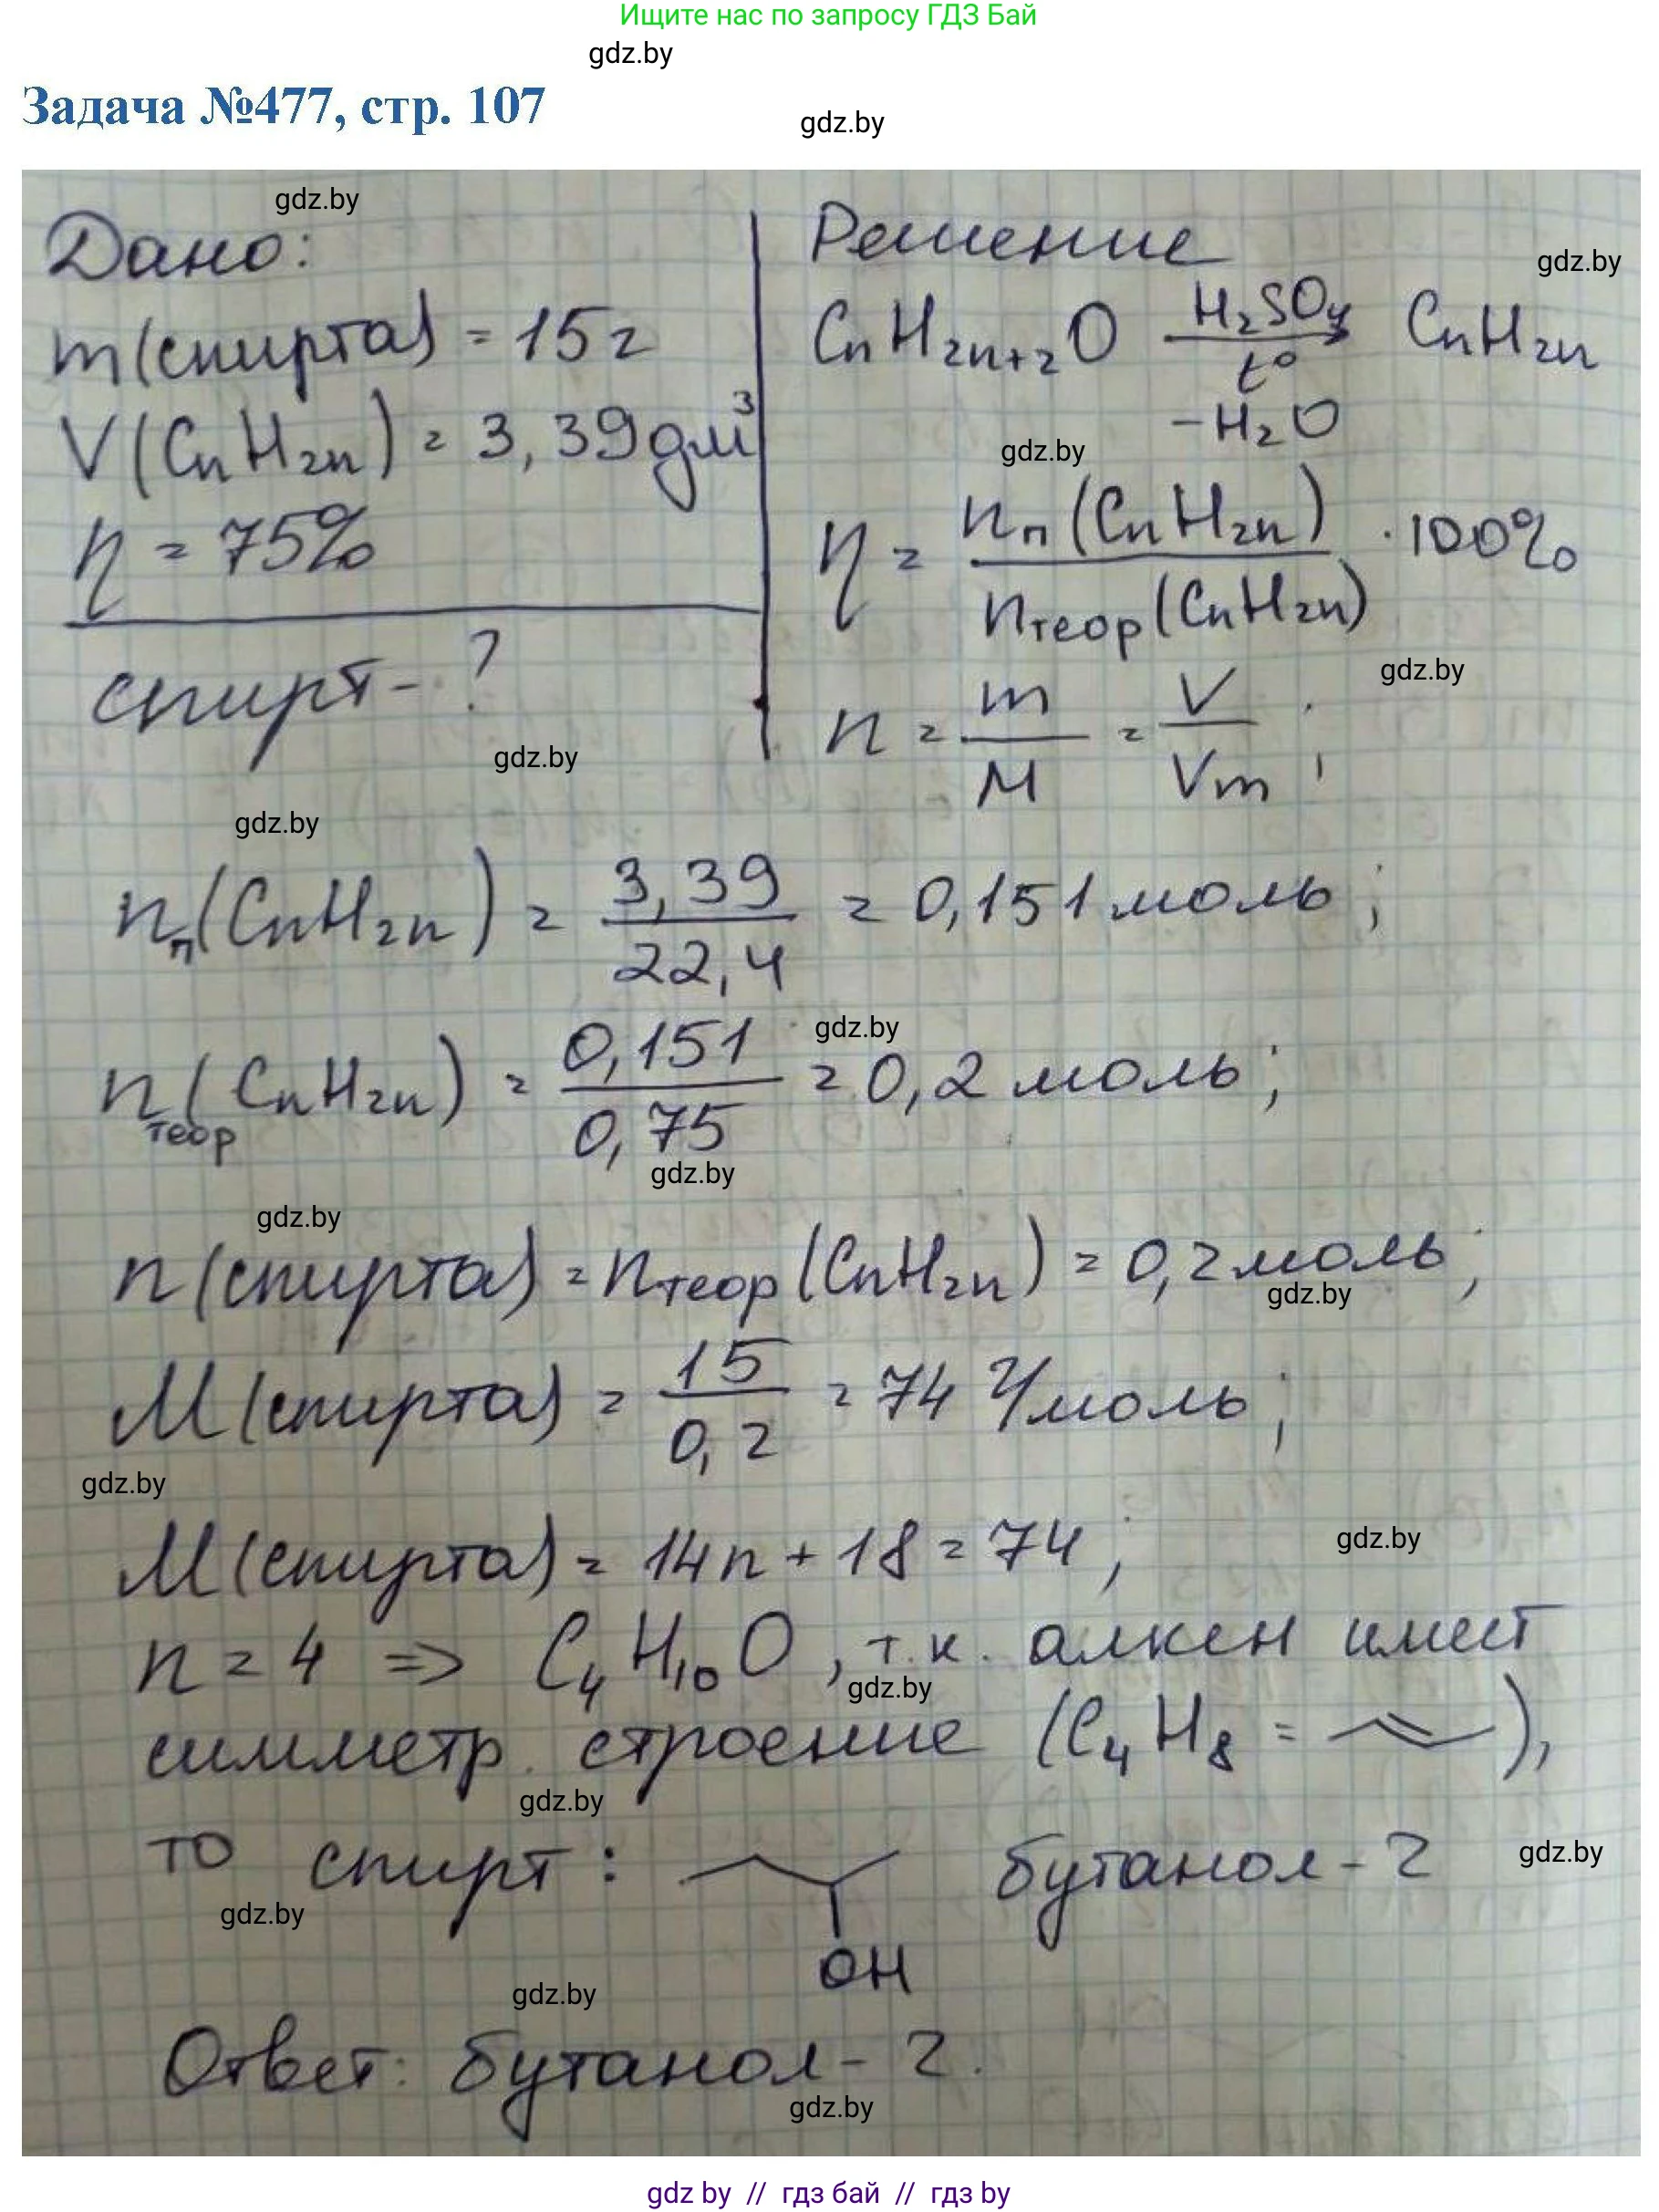 Ищите нас по запросу ГДЗ Бай
gdz.by
Задача №477, стр. 107
gdz.by
gdz.by
Дано:
m(спирта) = 15г
V(CnH2n) = 3,39дм³
η = 75%
спирт - ?
gdz.by
gdz.by
Решение
gdz.by
CnH2n+2O H2SO4 t° CnH2n
-H2O
gdz.by
η = nп(CnH2n) / nтеор(CnH2n) · 100%
gdz.by
n = m/M = V/Vm ;
nп(CnH2n) = 3,39/22,4 = 0,151 моль ;
gdz.by
nтеор(CnH2n) = 0,151/0,75 = 0,2 моль ;
gdz.by
gdz.by
n(спирта) = nтеор(CnH2n) = 0,2 моль ;
gdz.by
M(спирта) = 15/0,2 = 74 г/моль ;
gdz.by
gdz.by
M(спирта) = 14n + 18 = 74 ;
n = 4 => C4H10O , т.к. алкен имеет
gdz.by
симметр. строение (C4H8 = ),
gdz.by
то спирт : бутанол - 2
gdz.by
gdz.by
OH
gdz.by
Ответ: бутанол - 2.
gdz.by
gdz by // гдз бай // гдз by